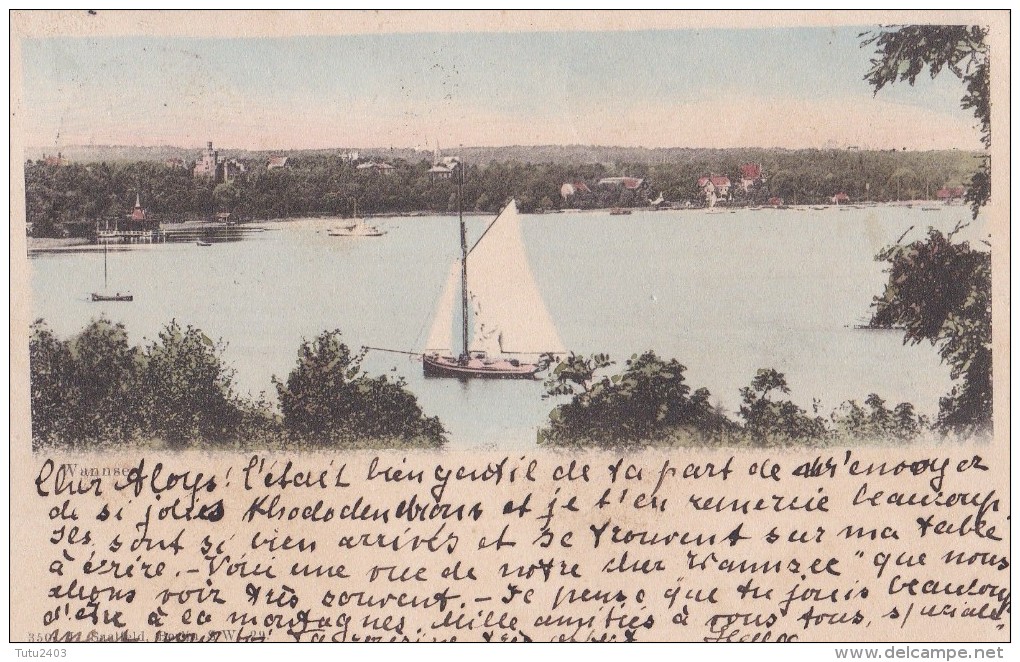 Wannsee
Cher Aloys! C'était bien gentil de ta part de m'envoyer
de si jolies Rhododendrons et je t'en remercie beaucoup
Ils sont si bien arrivés et se trouvent sur ma table
à écrire. - Voici une vue de notre cher Wannsee" que nous
allons voir très souvent. - Je pense que tu jouis beaucoup
d'être à la montagnes. Mille amitiés à vous tous, spéciale"
350 Saalfeld, Berlin S.W. 29
Tutu2403
www.delcampe.net